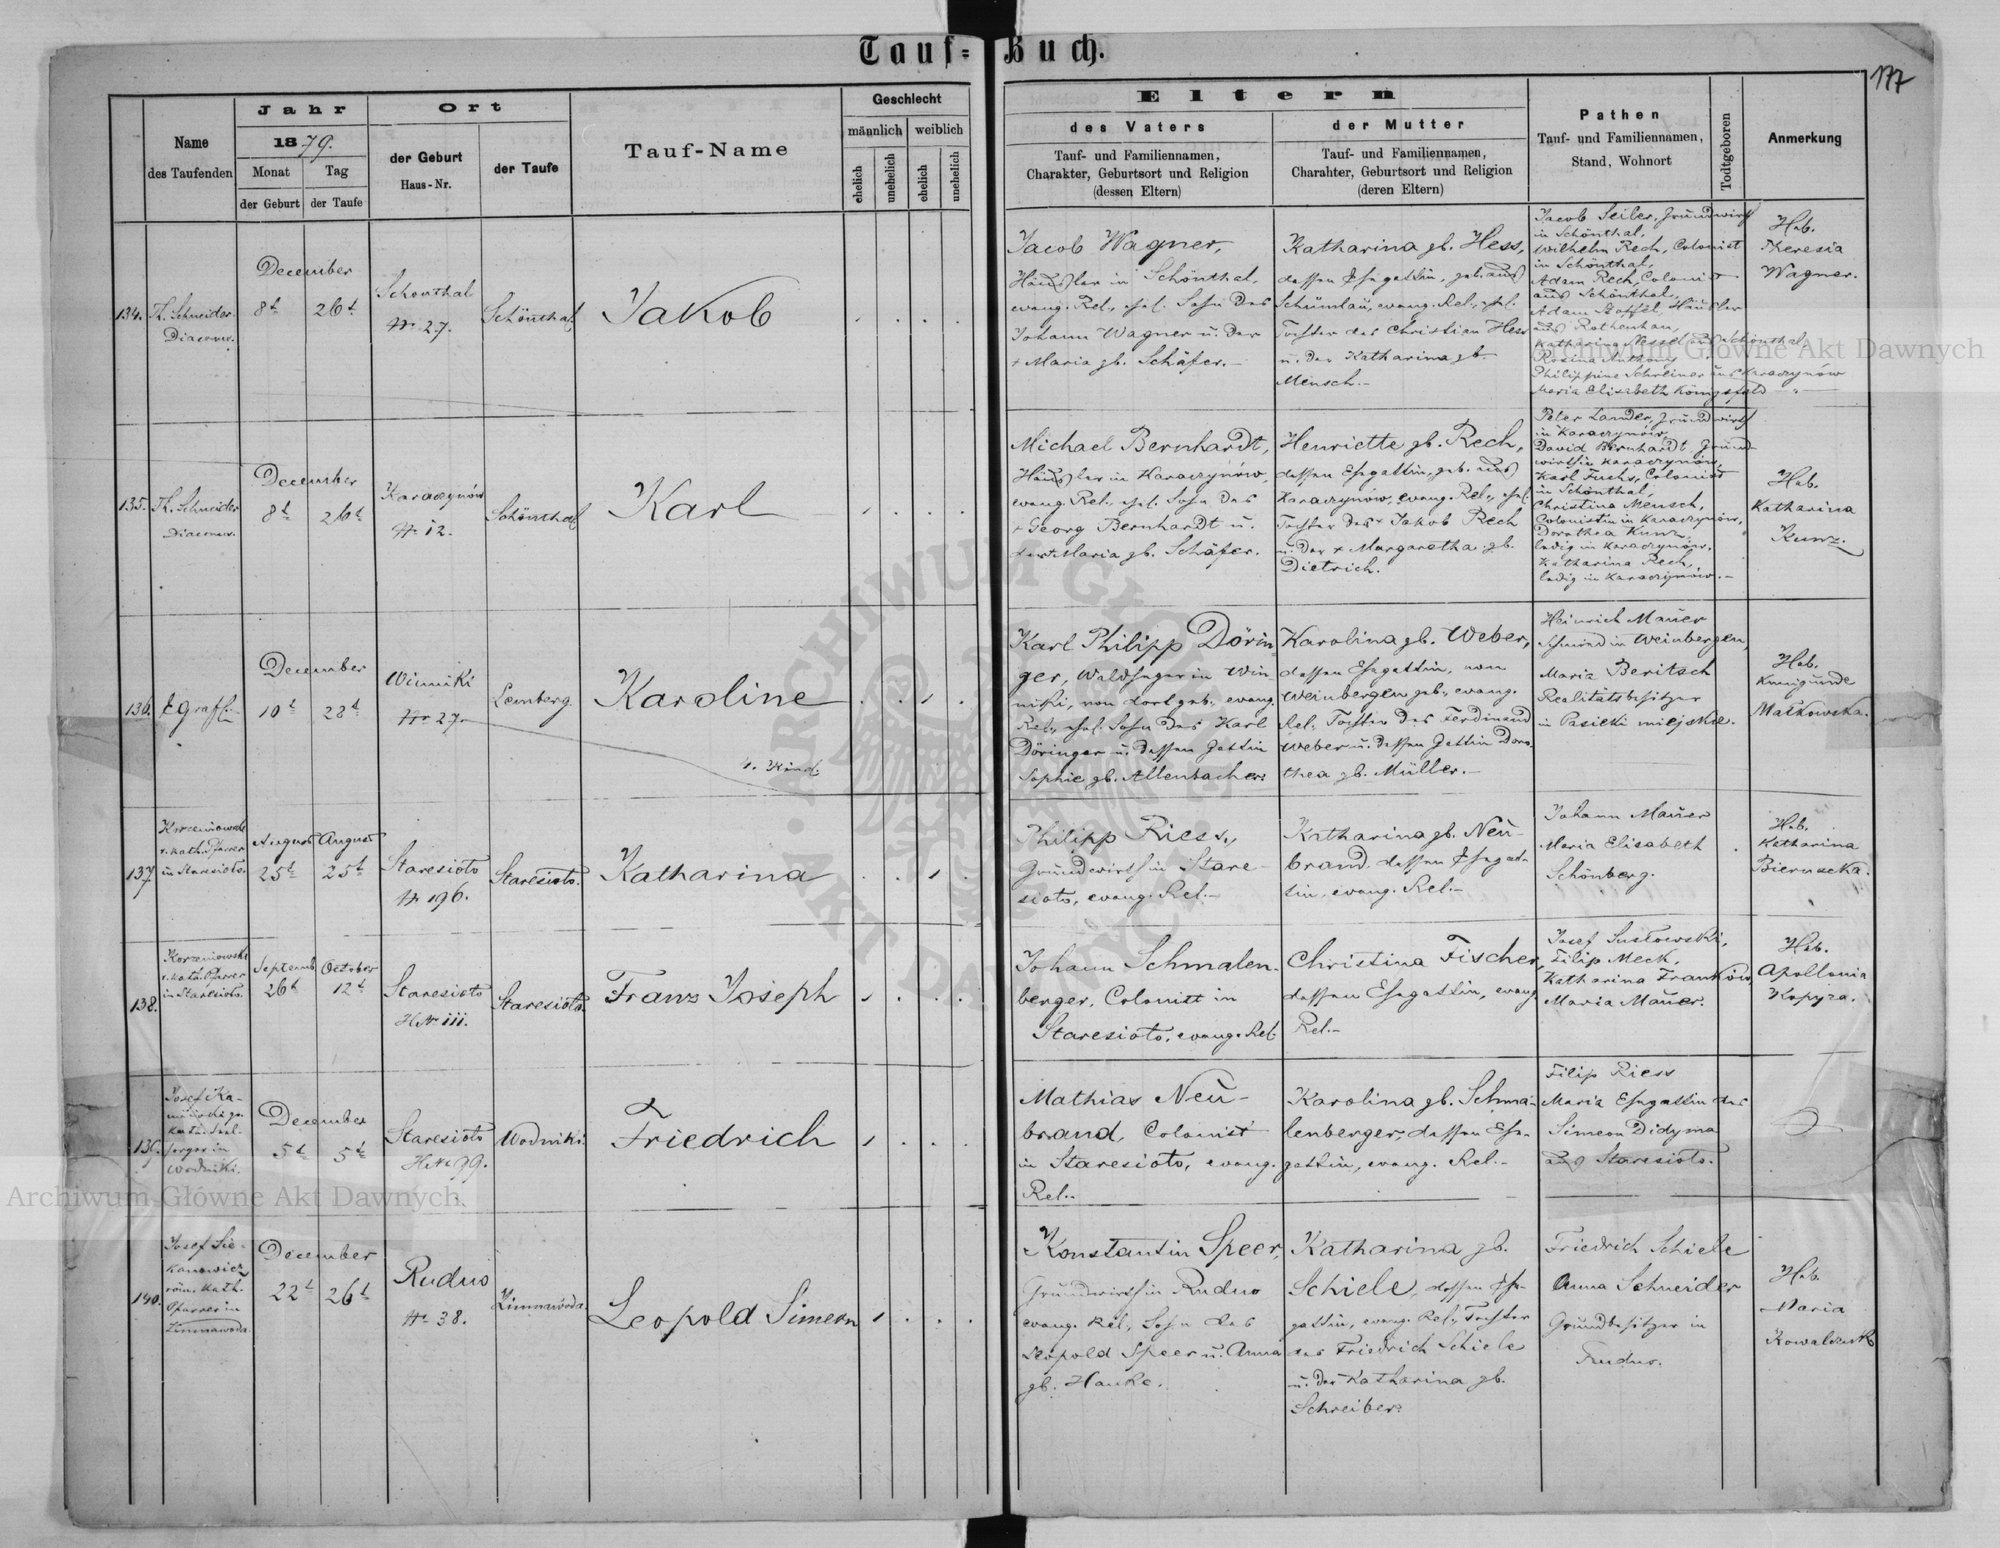 Tauf-Buch.
177
Name
des Taufenden
Jahr
1879.
Monat
Tag
der Geburt
der Taufe
Ort
der Geburt
Haus-Nr.
der Taufe
Tauf-Name
Geschlecht
männlich
weiblich
ehelich
unehelich
ehelich
unehelich
Eltern
des Vaters
Tauf- und Familiennamen,
Charakter, Geburtsort und Religion
(dessen Eltern)
der Mutter
Tauf- und Familiennamen,
Charahter, Geburtsort und Religion
(deren Eltern)
Pathen
Tauf- und Familiennamen,
Stand, Wohnort
Todtgeboren
Anmerkung
134.
Th. Schneider
Diaconus.
December
8t
26t
Schönthal
Nr. 27.
Schönthal
Jakob
Jacob Wagner,
Häusler in Schönthal,
evang. Rel., ehel. Sohn des
Johann Wagner u. der
+ Maria gb. Schäfer.-
Katharina gb. Hess,
dessen Ehegattin, geb. aus
evang. Rel., ehel.
Tochter des Christian Hess
u. der Katharina gb.
Mensch.-
Jacob Seiler, Grundwirth
in Schönthal,
Wilhelm Rech, Colonist
in Schönthal,
Adam Rech, Colonist
aus Schönthal,
Adam Stoffel, Häusler
aus Rothenhan,
Katharina Nessel aus Schönthal,
Rosina Anthony
Philippine Schreiner aus Karaczynów
Maria Elisabeth Königsfeld
Heb.
Theresia
Wagner.
135.
Th. Schneider
Diaconus.
December
8t
26t
Karaczynów
Nr. 12.
Schönthal
Karl
Michael Bernhardt,
Häusler in Karaczynów,
evang. Rel., ehel. Sohn des
+ Georg Bernhardt u.
der + Maria gb. Schäfer.
Henriette gb. Rech,
dessen Ehegattin, geb. aus
Karaczynów, evang. Rel., ehel.
Tochter des + Jakob Rech
u. der + Margaretha gb.
Dietrich.
Peter Lander, Grundwirth
in Karaczynów,
David Bernhardt Grund-
wirth in Karaczynów,
Karl Fuchs, Colonist
in Schönthal,
Christina Mensch,
Colonistin in Karaczynów,
Dorothea Kunz,
ledig in Karaczynów,
Katharina Rech,
ledig in Karaczynów.-
Heb.
Katharina
Kunz.
136.
December
10t
28t
Winniki
Nr. 27.
Lemberg
Karoline
4. Kind.
Karl Philipp Dörin-
ger, Waldheger in Win-
niki, von dort geb., evang.
Rel., ehel. Sohn des Karl
Döringer u. dessen Gattin
Sophie gb. Allenbacher.
Karolina gb. Weber,
dessen Ehegattin, von
Weinbergen geb., evang.
Rel., Tochter des Ferdinand
Weber u. dessen Gattin Doro-
thea gb. Müller.-
Heinrich Mauer
Schmied in Weinbergen,
Maria Beritsch
Realitätsbesitzer
in Pasieki miejskie.
Heb.
Kunigunde
Małkowska.
137
Korzeniowski
r. kath. Pfarrer
in Staresioło.
August
25t
August
25t
Staresioło
Nr. 196.
Staresioło.
Katharina
Philipp Riess,
Grundwirth in Stare-
sioło, evang. Rel.-
Katharina gb. Neu-
brand, dessen Ehegat-
tin, evang. Rel.-
Johann Mauer
Maria Elisabeth
Schönberg.
Heb.
Katharina
Biernacka.
138.
Korzeniowski
r. kath. Pfarrer
in Staresioło.
Septemb.
26t
October
12t
Staresioło
HNr. 111.
Staresioło.
Franz Joseph
Johann Schmalen-
berger, Colonist in
Staresioło, evang. Rel.
Christina Fischer,
dessen Ehegattin, evang.
Rel.-
Josef Susłowski,
Filip Meck,
Katharina Franków,
Maria Mauer.
Heb.
Apollonia
Kopyra.
139.
in
Wodniki.
December
5t
5t
Staresioło
HNr. 99.
Wodniki
Friedrich
Mathias Neu-
brand, Colonist
in Staresioło, evang.
Rel.-
Karolina gb. Schma-
lenberger, dessen Ehe-
gattin, evang. Rel.-
Filip Riess
Maria Ehegattin des
Simeon Didyma
aus Staresioło.
140.
Josef Sie-
kanowicz
röm. kath.
Pfarrer in
Zimnawoda.
December
22t
26t
Rudno
Nr. 38.
Zimnawoda.
Leopold Simeon
Konstantin Speer,
Grundwirth in Rudno
evang. Rel., Sohn des
Leopold Speer u. Anna
gb. Hanke.
Katharina gb.
Schiele, dessen Ehe-
gattin, evang. Rel., Tochter
des Friedrich Schiele
u. der Katharina gb.
Schreiber.
Friedrich Schiele
Anna Schneider
Grundbesitzer in
Rudno.
Heb.
Maria
Kowalczuk
Archiwum Główne Akt Dawnych
Archiwum Główne Akt Dawnych